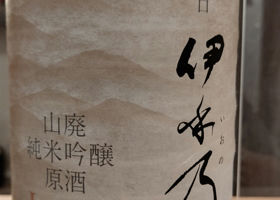 伊乎乃
いおの
山廃
純米吟醸
原酒